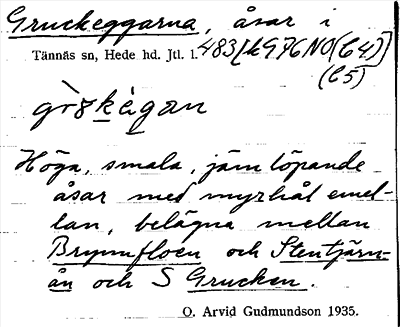 Gruckeggarna, åsar i
Tännäs sn, Hede hd. Jtl. l. 483[kG76NO(C4)]
(C5)
Höga, smala, jämlöpande
åsar med myrhål emel-
lan, belägna mellan
Brynnfloen och Stentjärn-
ån och S Grucken.
O. Arvid Gudmundson 1935.